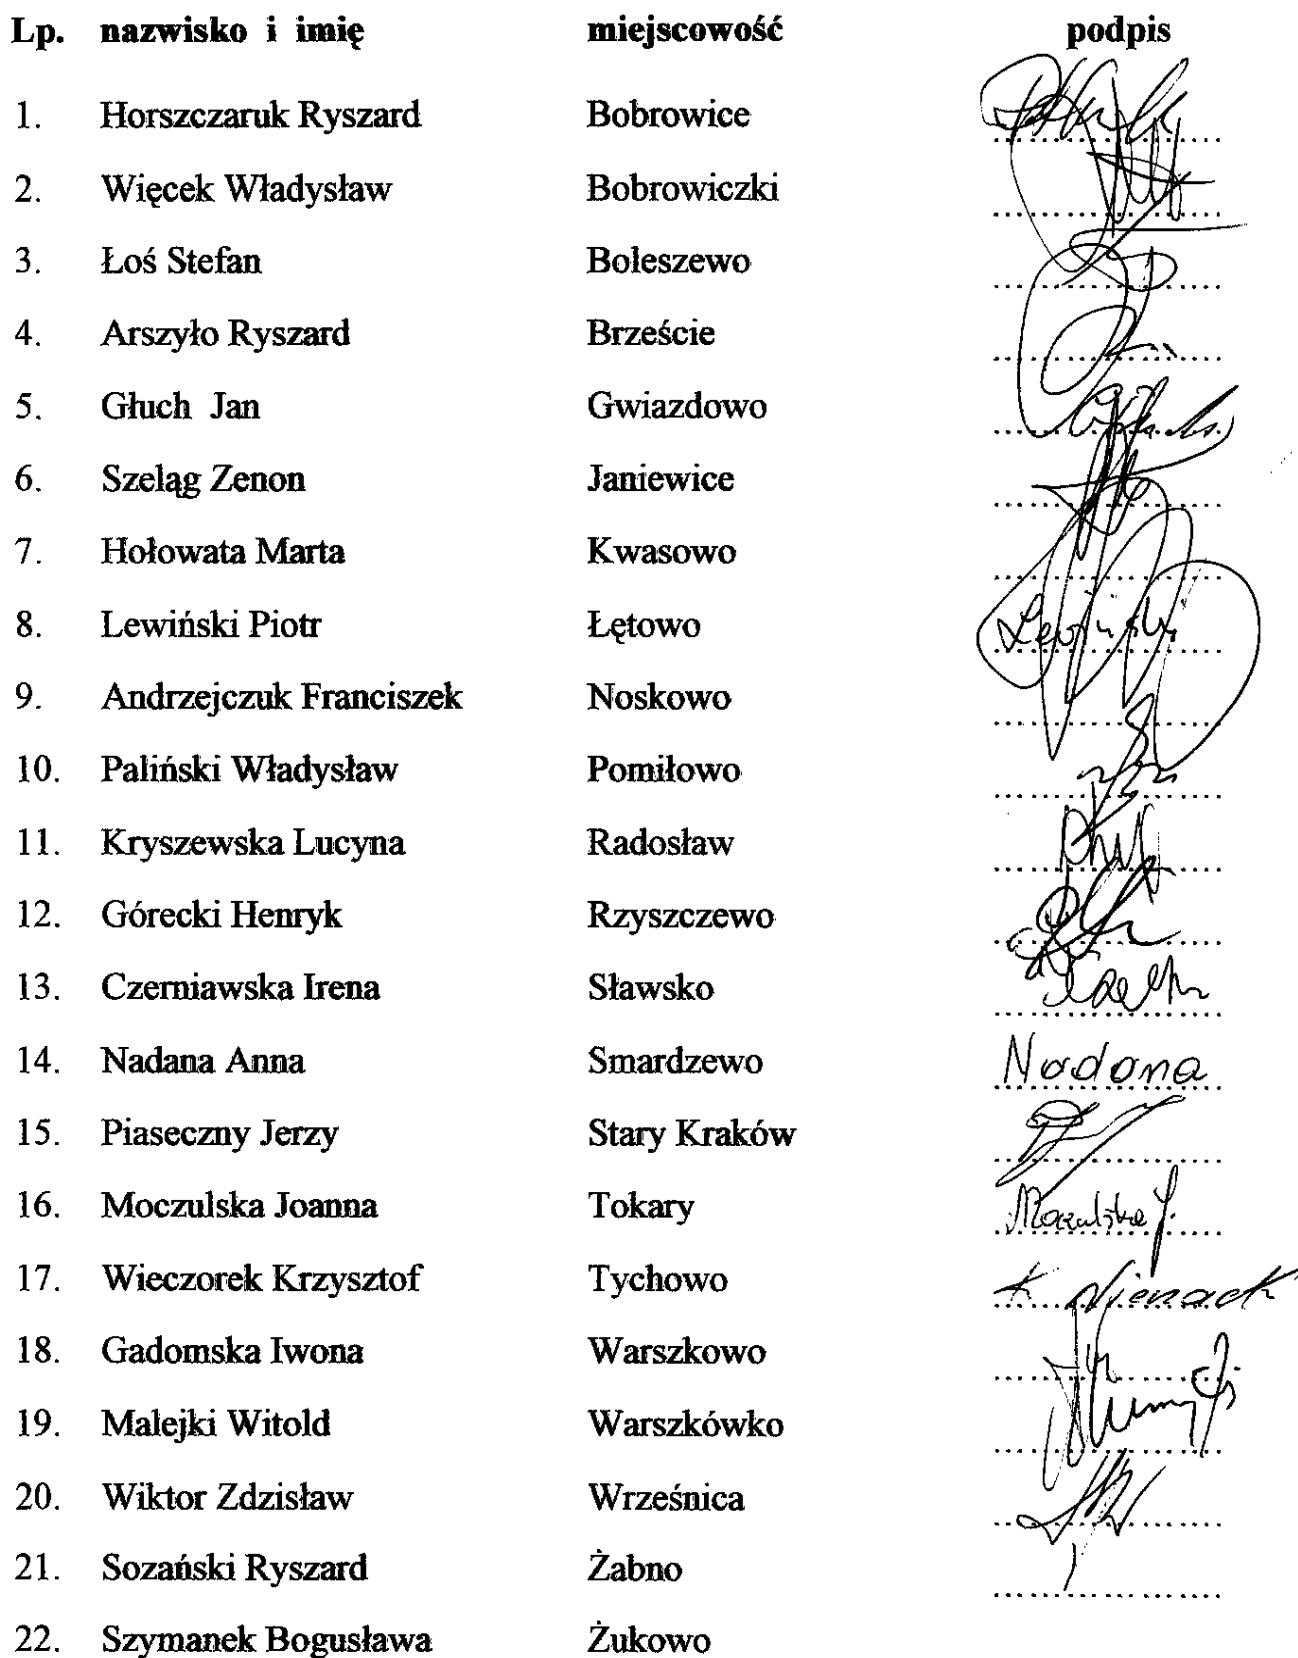 Lp. nazwisko i imię miejscowość podpis
1. Horszczaruk Ryszard Bobrowice
2. Więcek Władysław Bobrowiczki
3. Łoś Stefan Boleszewo
4. Arszyło Ryszard Brzeście
5. Głuch Jan Gwiazdowo
6. Szeląg Zenon Janiewice
7. Hołowata Marta Kwasowo
8. Lewiński Piotr Łętowo Lewiński
9. Andrzejczuk Franciszek Noskowo
10. Paliński Władysław Pomiłowo
11. Kryszewska Lucyna Radosław
12. Górecki Henryk Rzyszczewo
13. Czerniawska Irena Sławsko
14. Nadana Anna Smardzewo Nadana
15. Piaseczny Jerzy Stary Kraków
16. Moczulska Joanna Tokary Moczulska J.
17. Wieczorek Krzysztof Tychowo
18. Gadomska Iwona Warszkowo
19. Malejki Witold Warszkówko
20. Wiktor Zdzisław Wrześnica
21. Sozański Ryszard Żabno
22. Szymanek Bogusława Żukowo